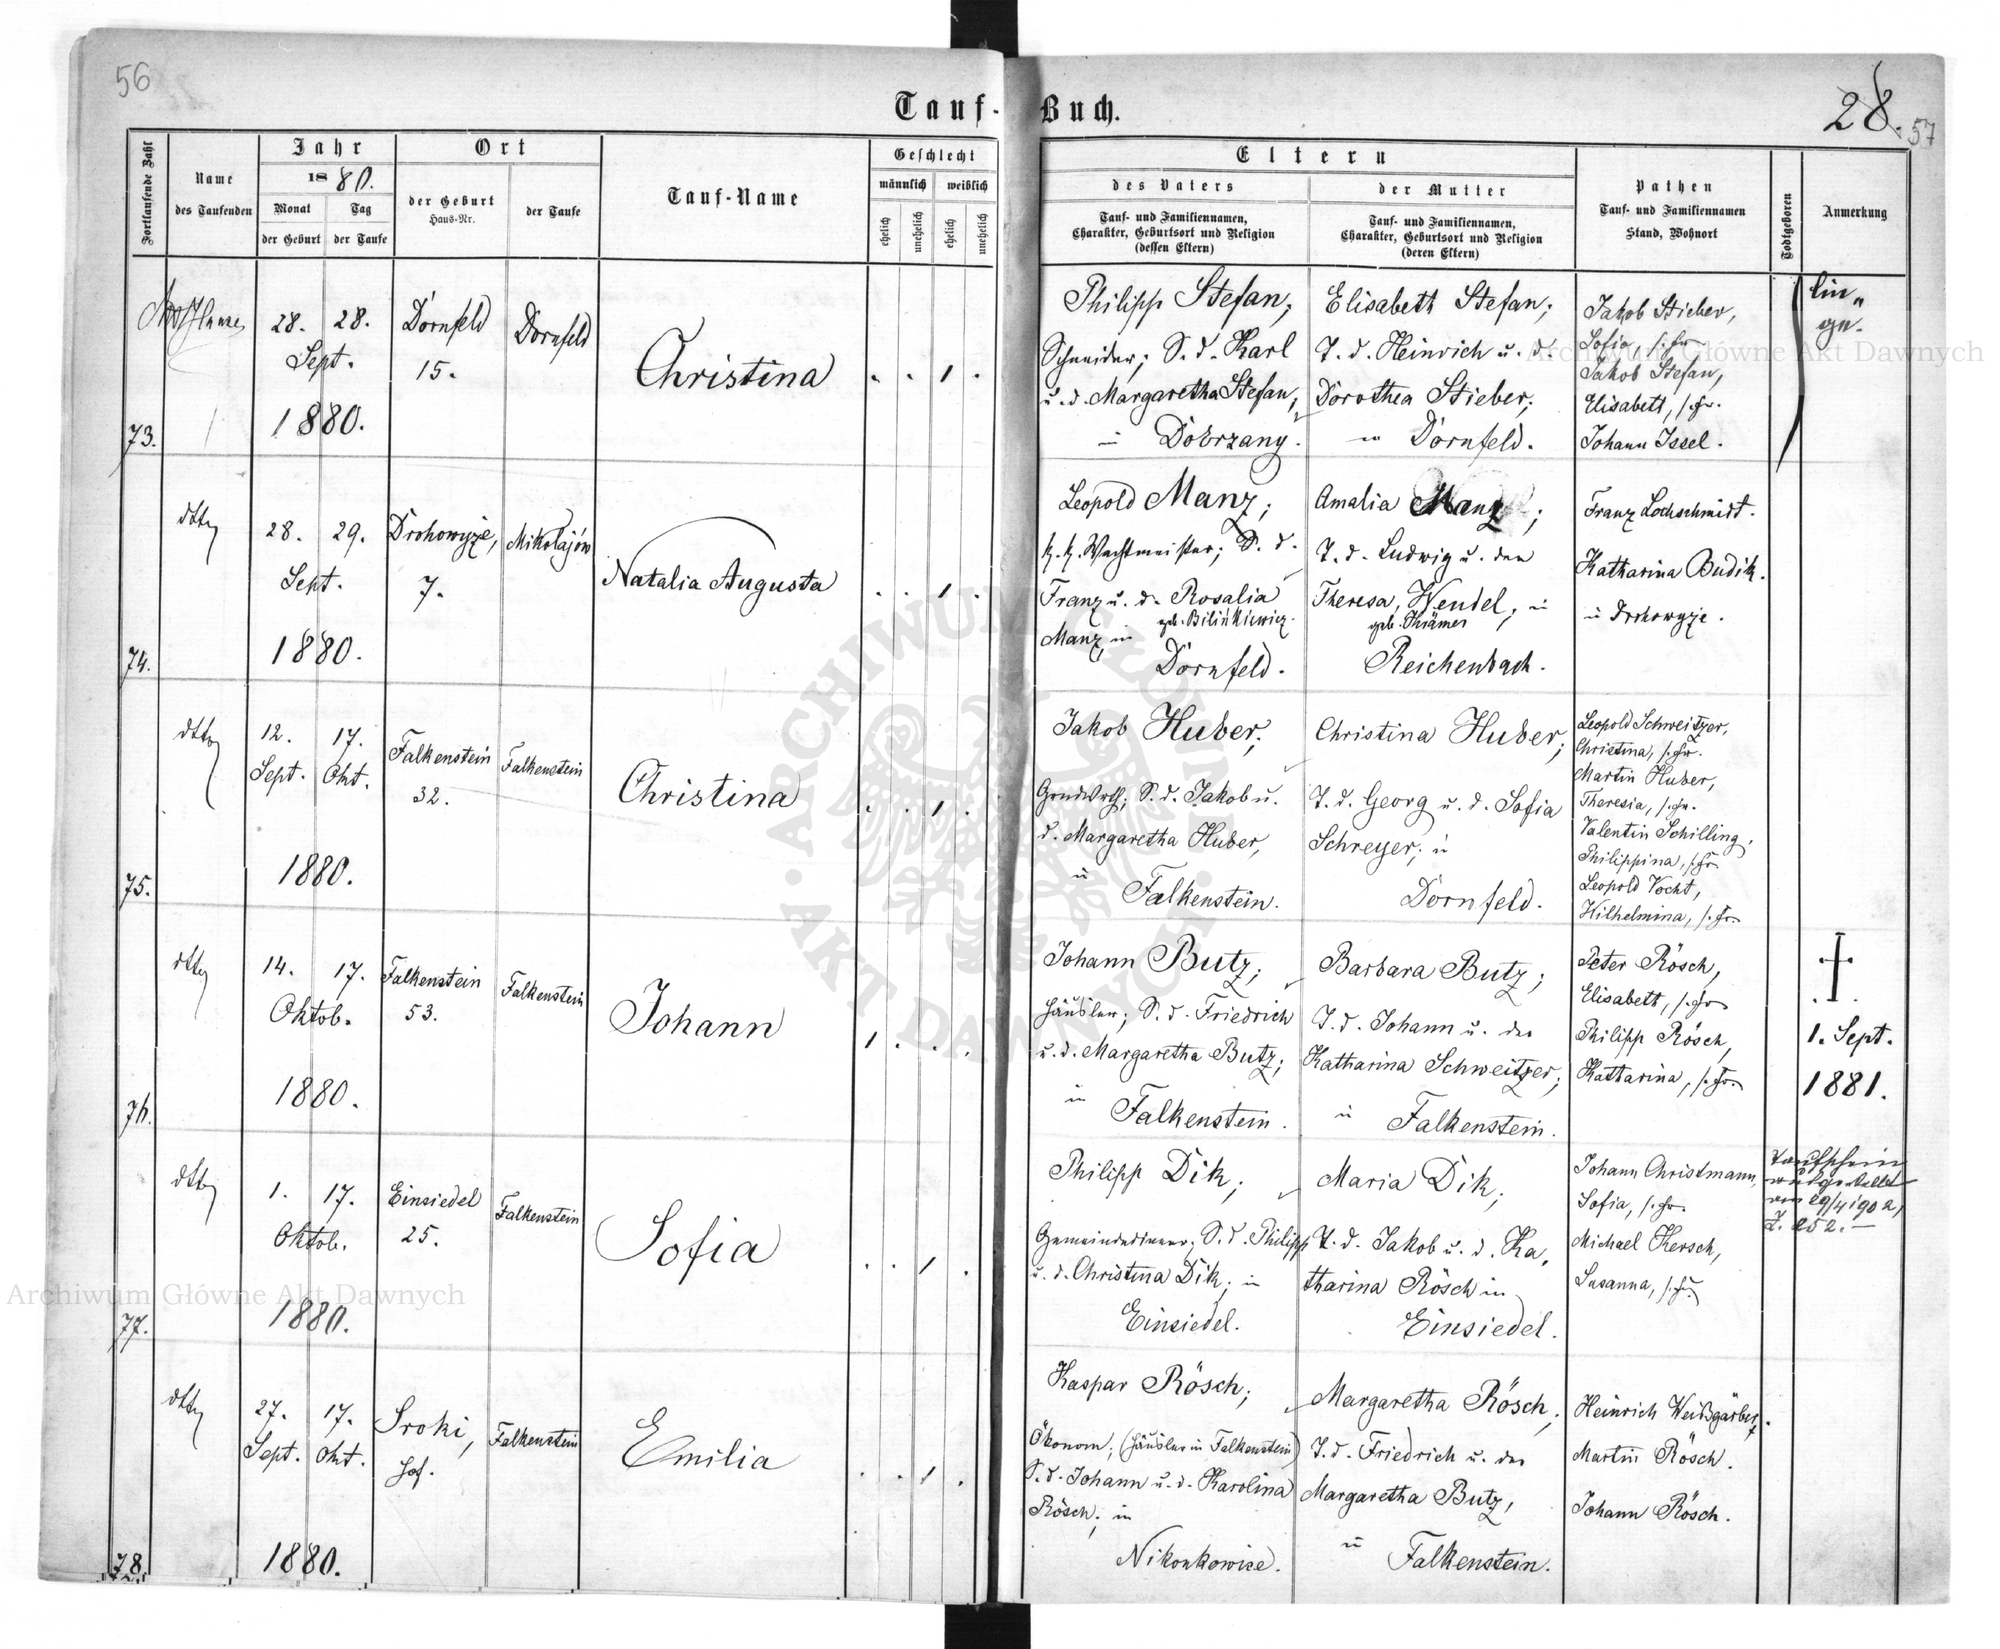 56
Tauf-Buch.
28.
57
Fortlaufende Zahl
Name
des Taufenden
Jahr
1880.
Monat
der Geburt
Tag
der Taufe
Ort
der Geburt
Haus-Nr.
der Taufe
Tauf-Name
Geschlecht
männlich
weiblich
ehelich
unehelich
ehelich
unehelich
Eltern
des Vaters
Tauf- und Familiennamen,
Charakter, Geburtsort und Religion
(dessen Eltern)
der Mutter
Tauf- und Familiennamen,
Charakter, Geburtsort und Religion
(deren Eltern)
Pathen
Tauf- und Familiennamen
Stand, Wohnort
Todtgeboren
Anmerkung
73.
28.
28.
Sept.
1880.
Dornfeld
15.
Dornfeld
Christina
. . 1 .
Philipp Stefan;
Schneider; S. d. Karl
u. d. Margaretha Stefan,
in Dobrzany.
Elisabeth Stefan;
T. d. Heinrich u. d.
Dorothea Stieber;
in Dornfeld.
Jakob Stieber,
Sofia, s. Fr.
Jakob Stefan,
Elisabett, s. Fr.
Johann Issel.
74.
dtto
28.
29.
Sept.
1880.
Drohowyże,
7.
Mikołajów
Natalia Augusta
. . 1 .
Leopold Manz;
k. k. Wachtmeister; S. d.
Franz u. d. Rosalia
geb. Bilińkiewicz.
Manz, in
Dornfeld.
Amalia Manz;
T. d. Ludwig u. der
Theresa, Wendel, in
geb. Krämer
Reichenbach.
Franz Lochschmidt.
Katharina Budik.
in Drohowyże.
75.
dtto
12.
17.
Sept.
Okt.
1880.
Falkenstein
32.
Falkenstein
Christina
. . 1 .
Jakob Huber;
Grndwrth; S. d. Jakob u.
d. Margaretha Huber,
in
Falkenstein.
Christina Huber;
T. d. Georg u. d. Sofia
Schreyer; in
Dornfeld.
Leopold Schweitzer,
Christina, s. Fr.
Martin Huber,
Theresia, s. Fr.
Valentin Schilling,
Philippina, s. Fr.
Leopold Vocht,
Wilhelmina, s. Fr.
76.
dtto
14.
17.
Oktob.
1880.
Falkenstein
53.
Falkenstein
Johann
1 . . .
Johann Butz;
Häusler; S. d. Friedrich
u. d. Margaretha Butz;
in
Falkenstein.
Barbara Butz;
T. d. Johann u. der
Katharina Schweitzer;
in
Falkenstein.
Peter Rösch,
Elisabett, s. Fr.
Philipp Rösch,
Katharina, s. Fr.
1. Sept.
1881.
77.
dtto
1.
17.
Oktob.
1880.
Einsiedel
25.
Falkenstein
Sofia
. . 1 .
Philipp Dik;
Gemeindediener; S. d. Philipp
u. d. Christina Dik; in
Einsiedel.
Maria Dik;
T. d. Jakob u. d. Ka,
tharina Rösch in
Einsiedel.
Johann Christmann,
Sofia, s. Fr.
Michael Kersch,
Susanna, s. Fr.
Taufschein
ausgestellt
am 29/4 1902,
Z. 252.
78.
dtto
27.
17.
Sept.
Okt.
1880.
Sroki,
Hof.
Falkenstein
Emilia
. . 1 .
Kaspar Rösch;
Ökonom; (Häusler in Falkenstein)
S. d. Johann u. d. Karolina
Rösch; in
Nikonkowice.
Margaretha Rösch;
T. d. Friedrich u. der
Margaretha Butz,
in
Falkenstein.
Heinrich Weißgärber.
Martin Rösch.
Johann Rösch.
Archiwum Główne Akt Dawnych
Archiwum Główne Akt Dawnych
ARCHIWUM GŁÓWNE
AKT DAWNYCH